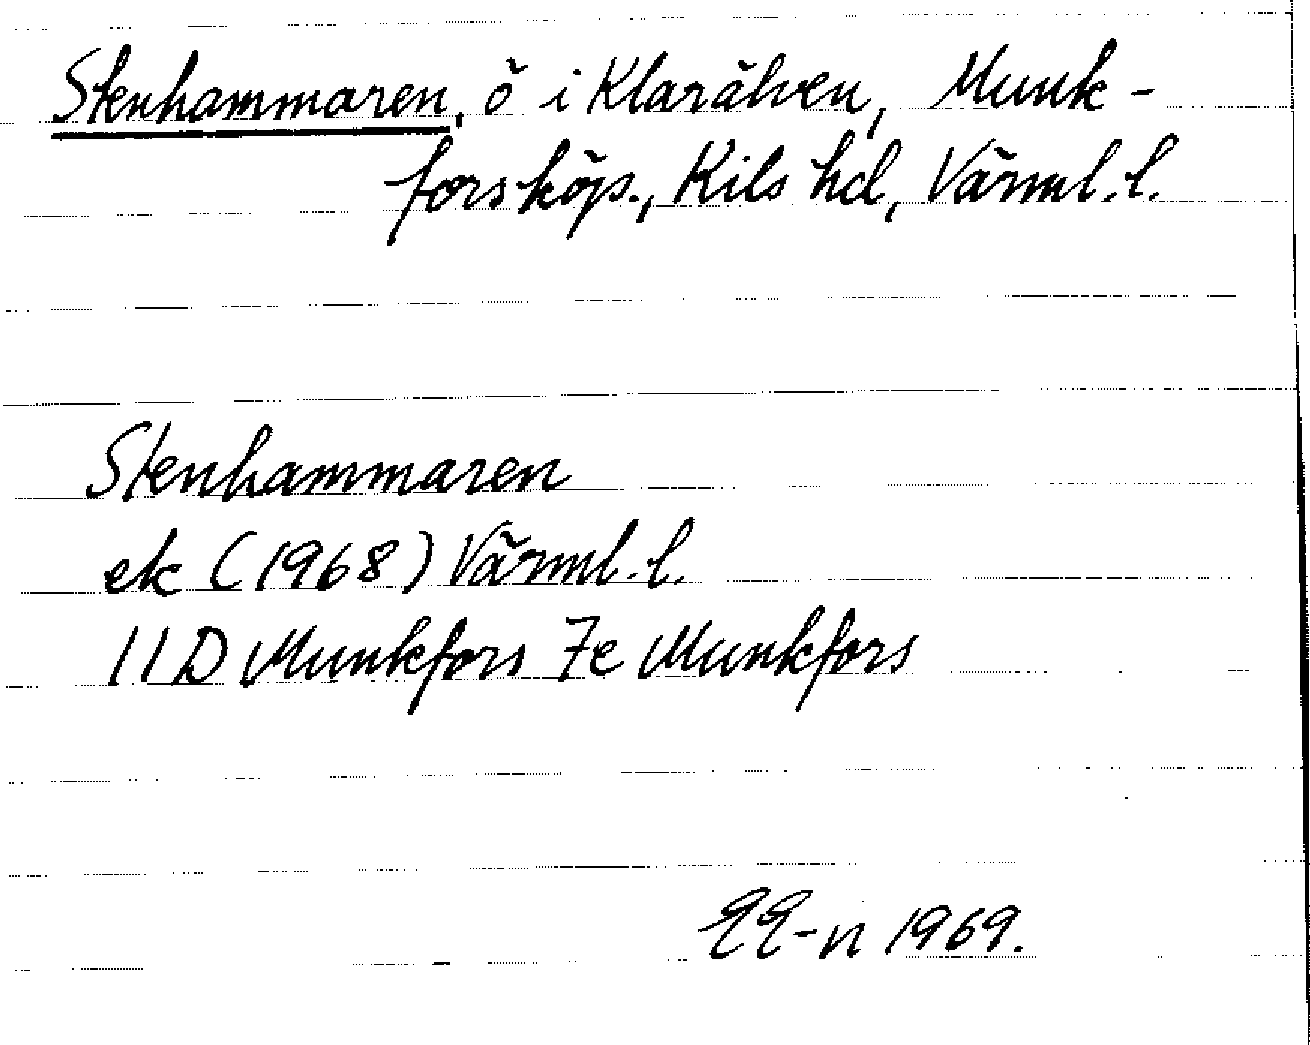 Stenhammaren, ö i Klarälven, Munk-
fors köp., Kils hd, Värml. l.
Stenhammaren
ek (1968) Värml. l.
11D Munkfors 7e Munkfors
EE-n 1969.